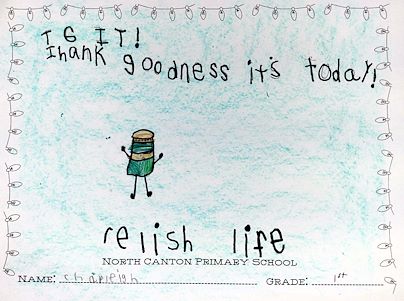 T G I T!
Thank goodness it's today!
relish life
NORTH CANTON PRIMARY SCHOOL
NAME: Sharleigh GRADE: 1st